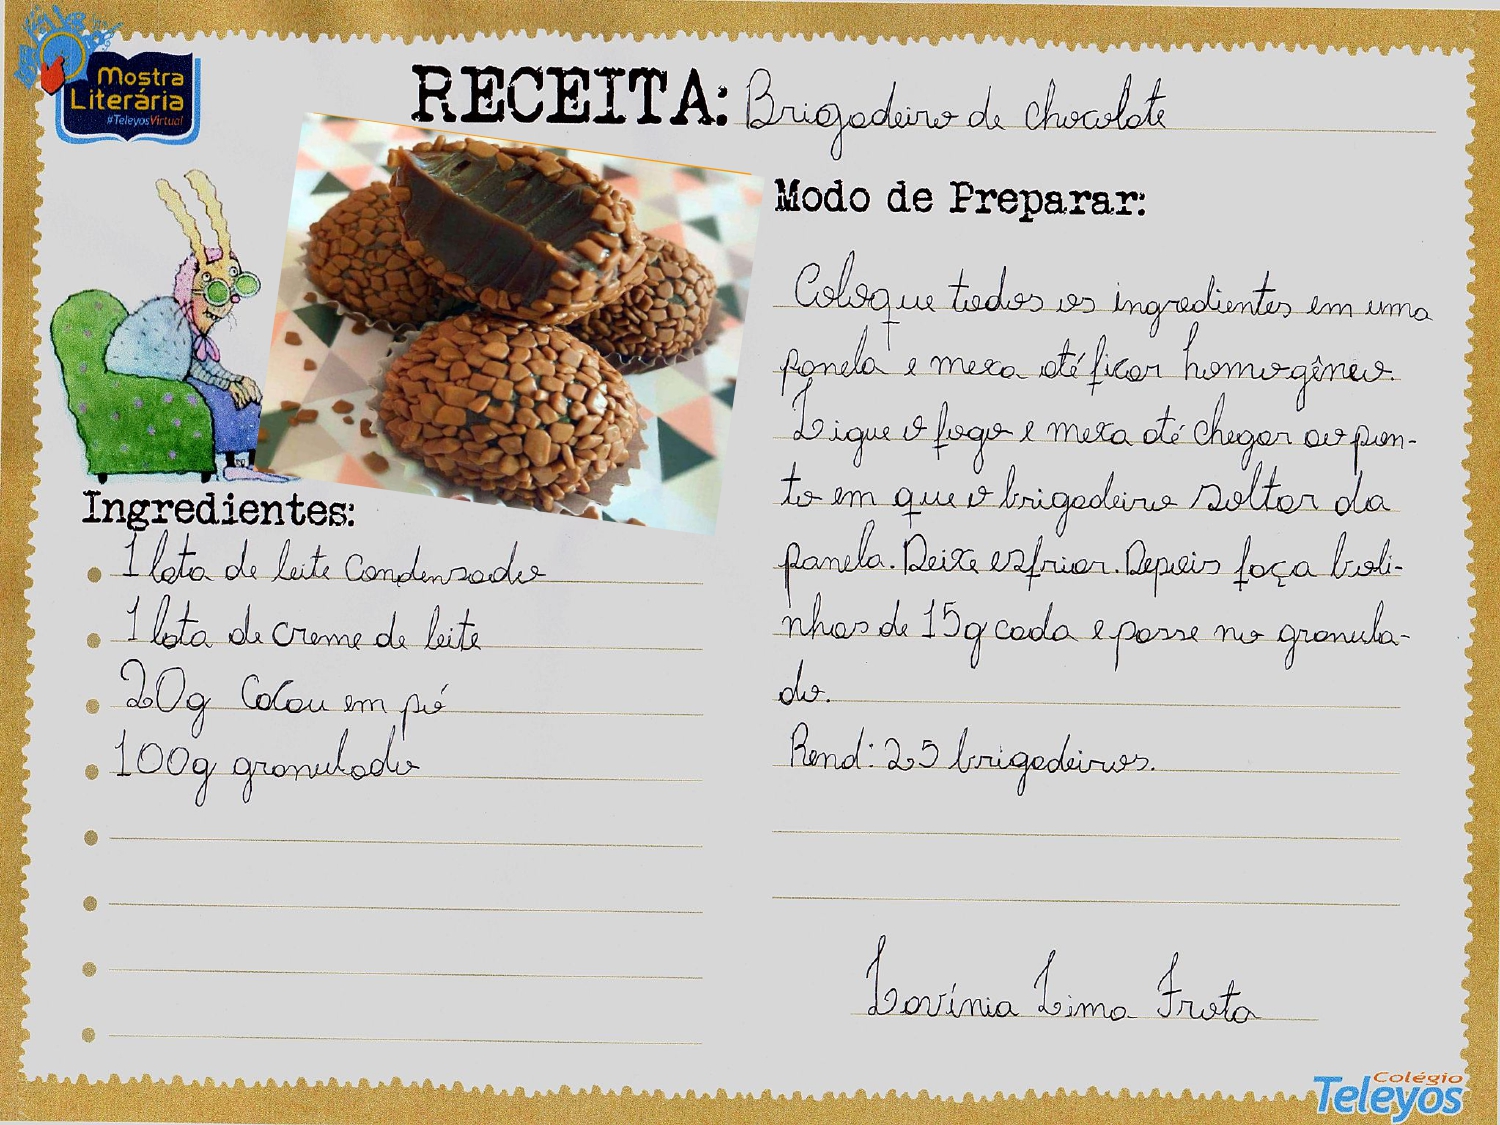 Mostra
Literária
#TeleyosVirtual
RECEITA: Brigadeiro de chocolate
Ingredientes:
1 lata de leite condensado
1 lata de creme de leite
20g Cacau em pó
100g granulado
Modo de Preparar:
Coloque todos os ingredientes em uma
panela e mexa até ficar homogêneo.
Ligue o fogo e mexa até chegar ao pon-
to em que o brigadeiro soltar da
panela. Deixe esfriar. Depois faça boli-
nhas de 15g cada e passe no granula-
do.
Rend: 25 brigadeiros.
Lavínia Lima Frota
Colégio
Teleyos